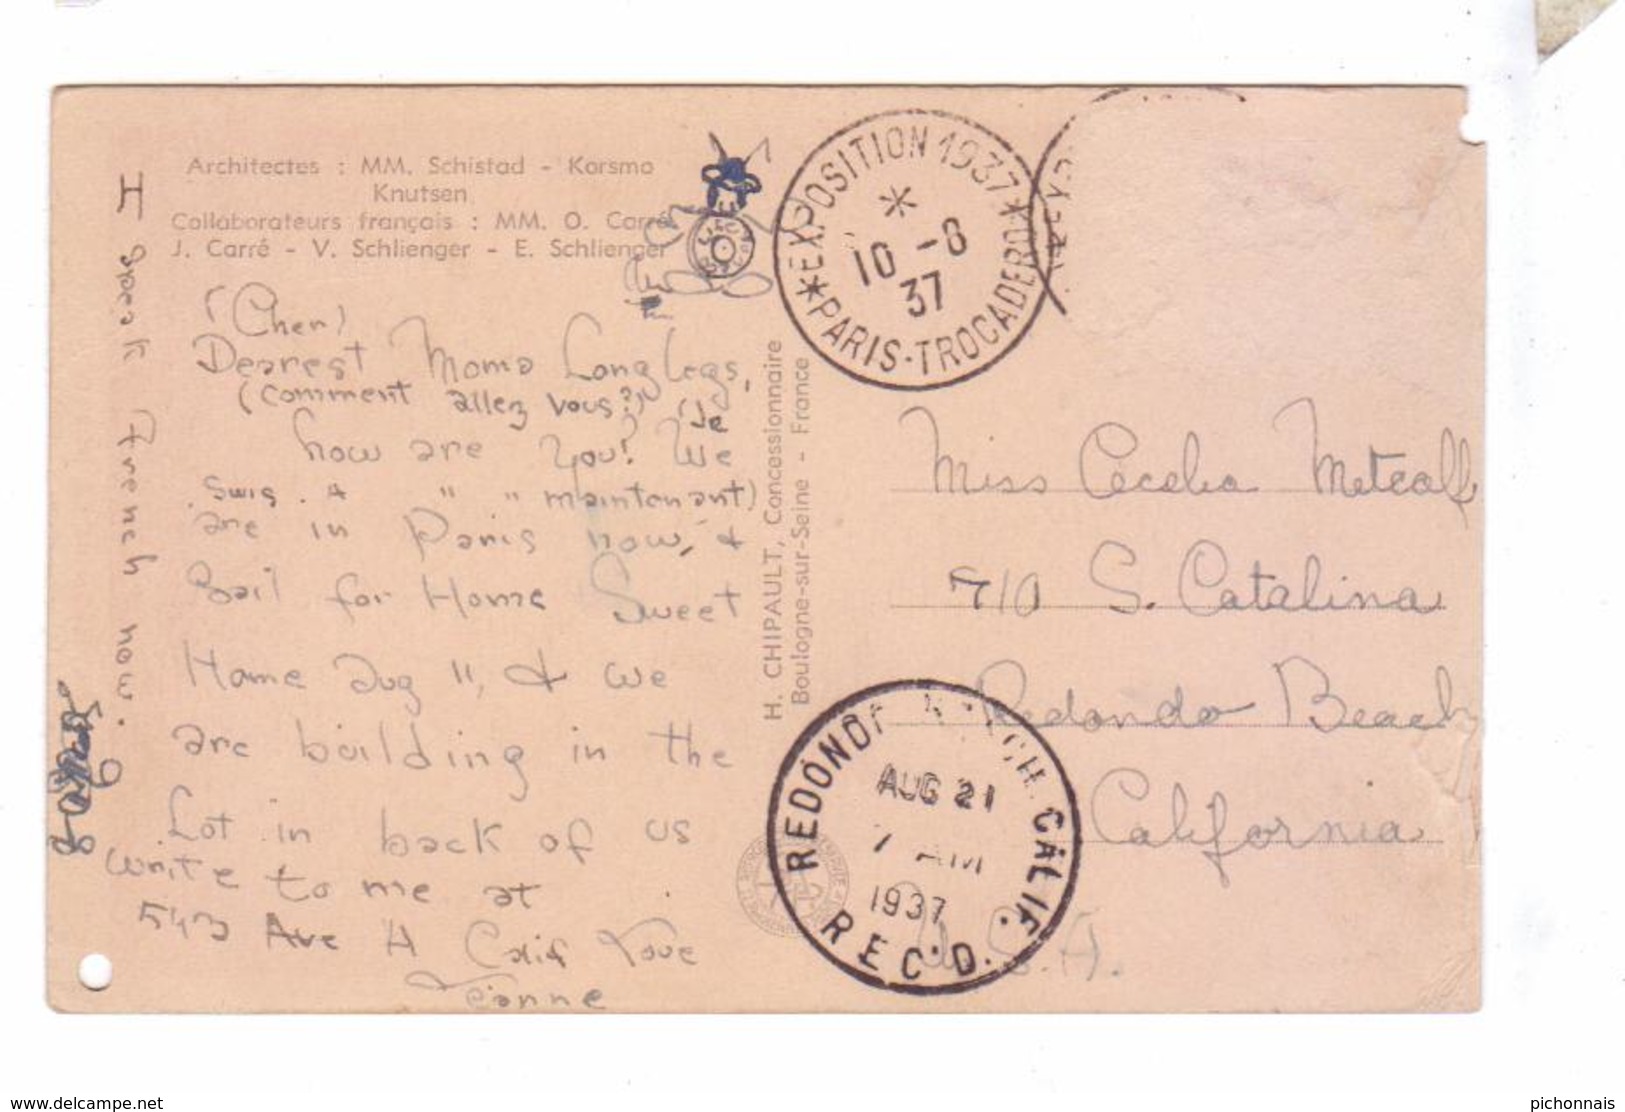 Architectes : MM. Schistad - Korsmo
Knutsen
Collaborateurs français : MM. O. Carré
J. Carré - V. Schlienger - E. Schlienger
(Cher)
Dearest Moma Long Legs,
(comment allez vous?) (Je
how are you? We
suis à " " maintenant)
are in Paris now, &
Sail for Home Sweet
Home Aug 11, & we
are building in the
Lot in back of us
write to me at
543 Ave A Calif Love
Jeanne
I speak French now.
H. CHIPAULT, Concessionnaire
Boulogne-sur-Seine - France
*EXPOSITION 1937*
*
10 -8
37
PARIS-TROCADERO
Miss Cecelia Metcalf
710 S. Catalina
Redondo Beach
California
U.S.A.
REDONDO BEACH. CALIF.
AUG 21
7 AM
1937
REC'D.
www.delcampe.net
pichonnais